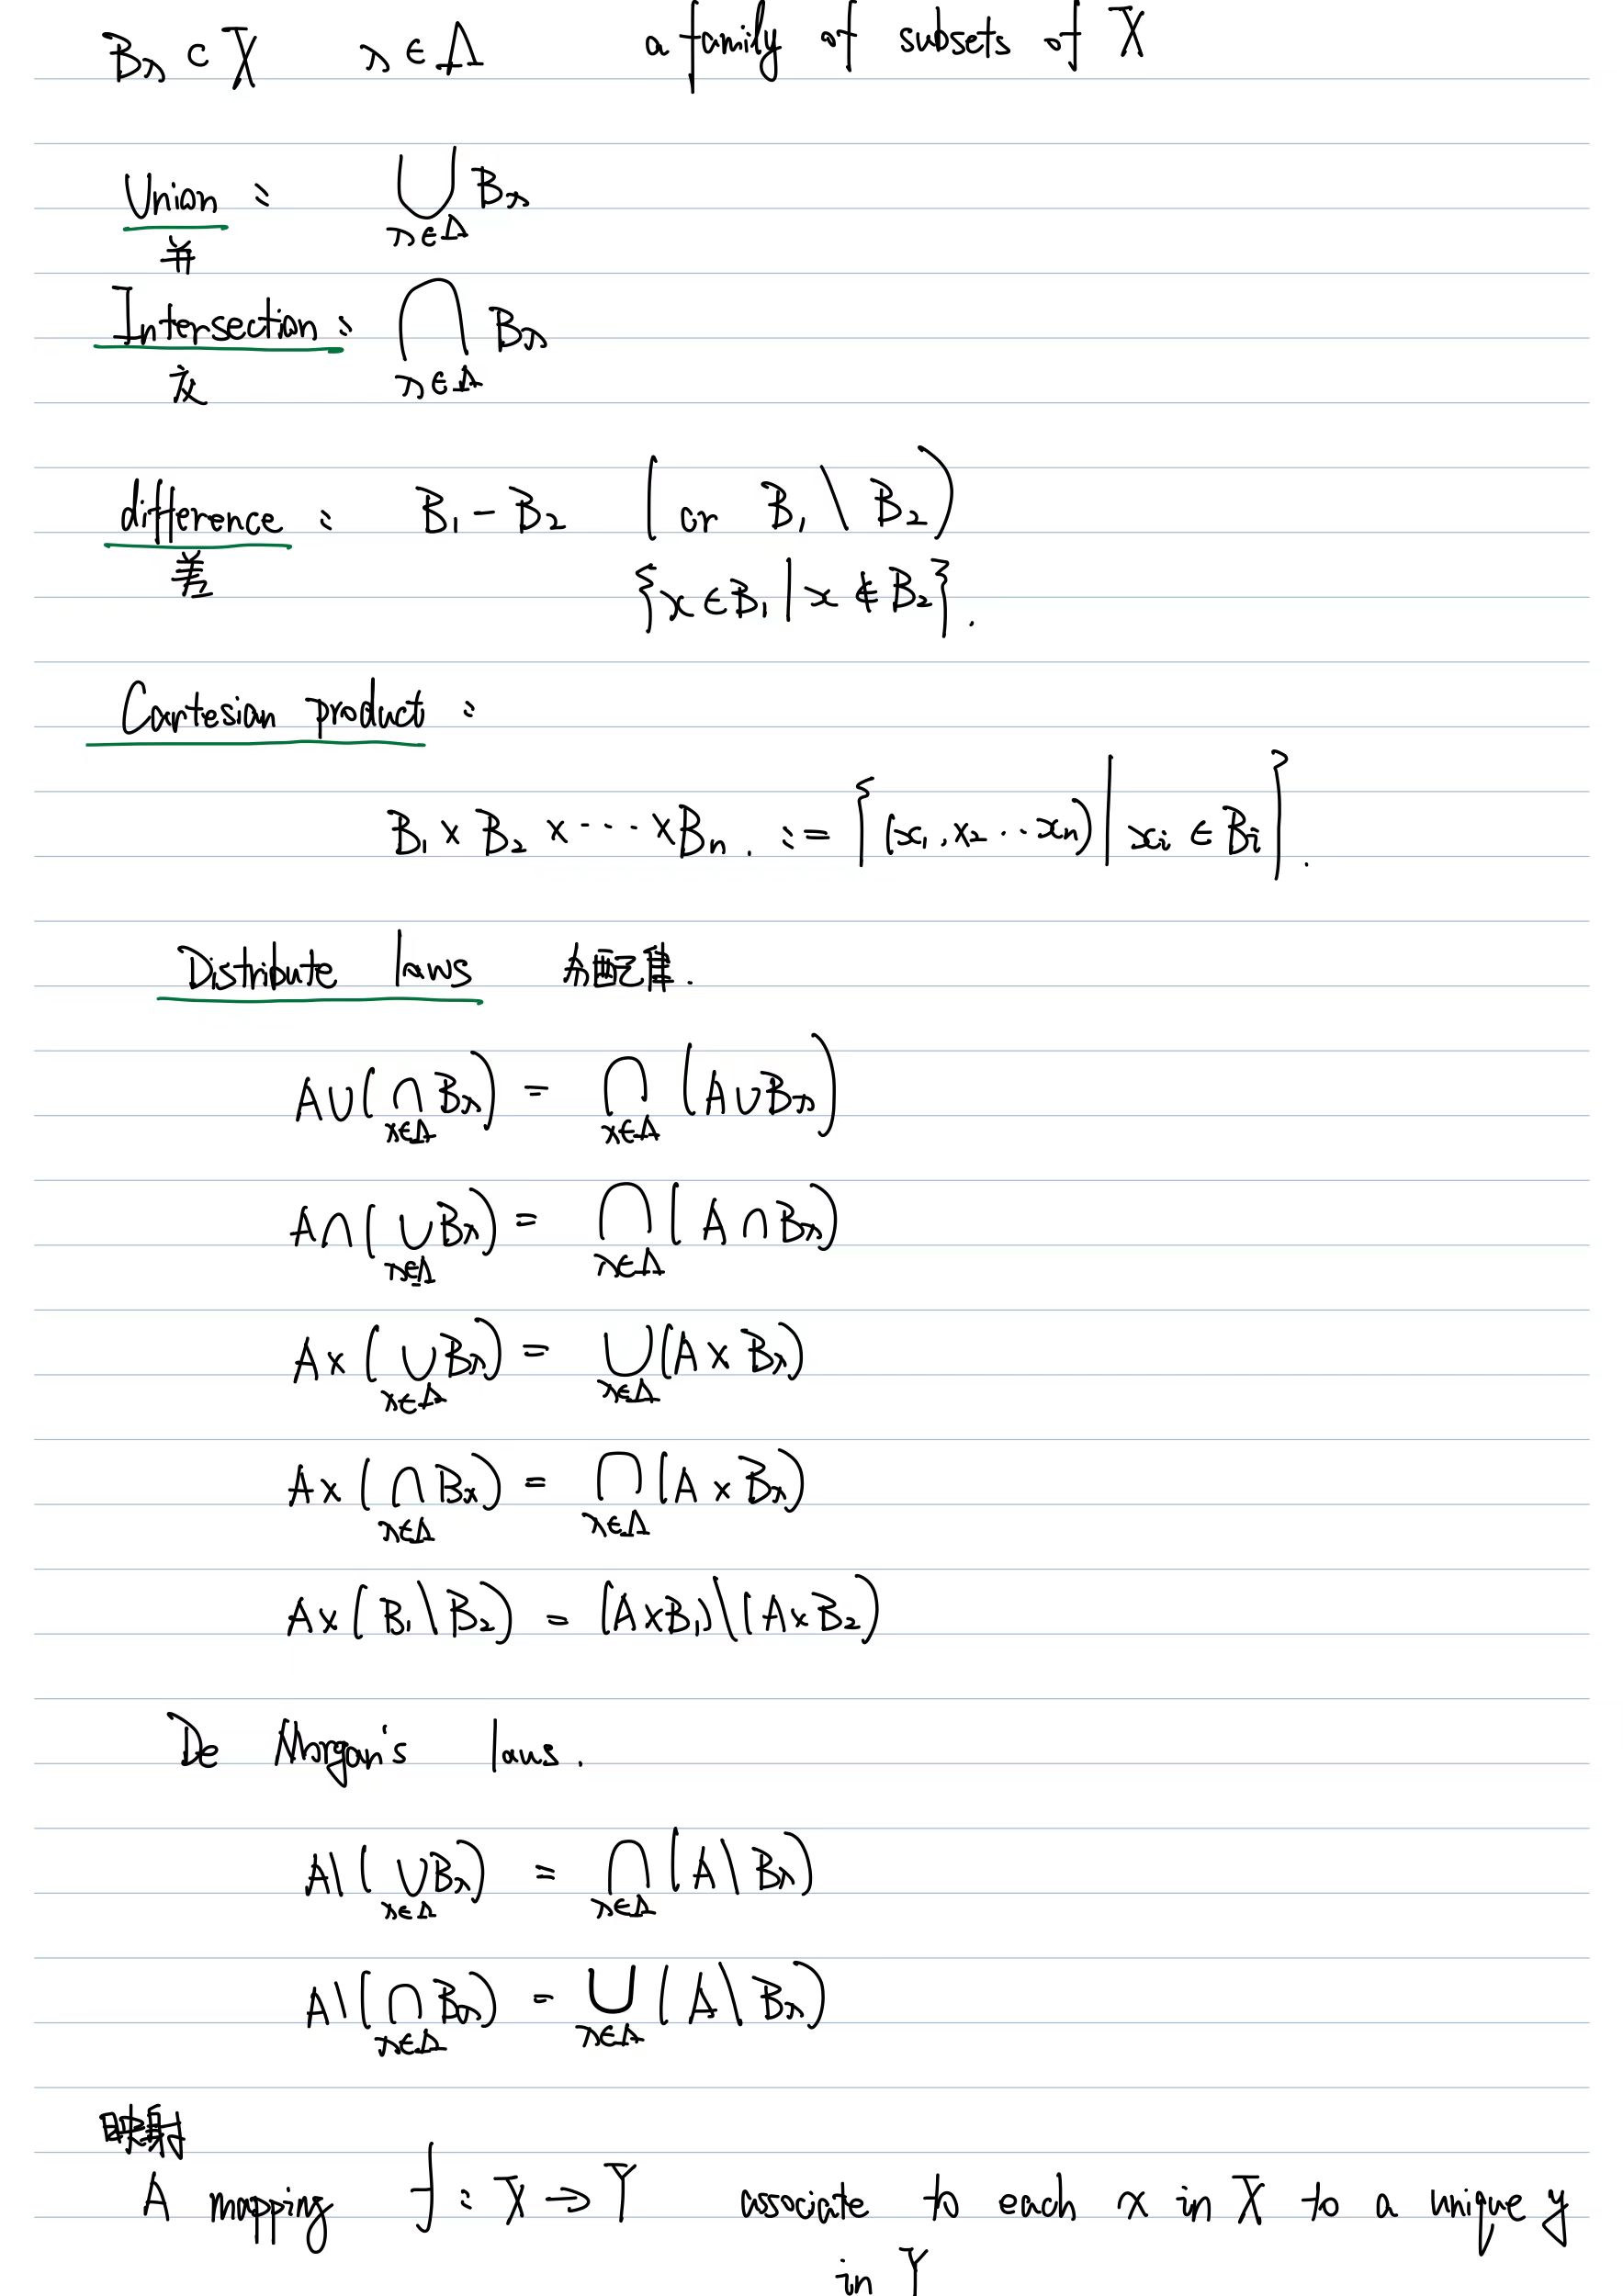 Bλ ⊂ X λ ∈ Λ a family of subsets of X
Union : ⋃_{λ∈Λ} Bλ
并
Intersection : ⋂_{λ∈Λ} Bλ
交
difference : B₁ − B₂ (or B₁ \ B₂)
差 {x ∈ B₁ | x ∉ B₂}.
Cartesian product :
B₁ × B₂ × ··· × Bₙ. := {(x₁, x₂ ·· xₙ) | xᵢ ∈ Bᵢ}.
Distribute laws 分配集.
A∪(⋂_{λ∈Λ} Bλ) = ⋂_{λ∈Λ} (A∪Bλ)
A∩(⋃_{λ∈Λ} Bλ) = ⋂_{λ∈Λ} (A∩Bλ)
A×(⋃_{λ∈Λ} Bλ) = ⋃_{λ∈Λ} (A×Bλ)
A×(⋂_{λ∈Λ} Bλ) = ⋂_{λ∈Λ} (A×Bλ)
A×(B₁\B₂) = (A×B₁)\(A×B₂)
De Morgan's laws.
A\(⋃_{λ∈Λ} Bλ) = ⋂_{λ∈Λ} (A\Bλ)
A\(⋂_{λ∈Λ} Bλ) = ⋃_{λ∈Λ} (A\Bλ)
映射
A mapping f : X → Y associate to each x in X to a unique y
in Y